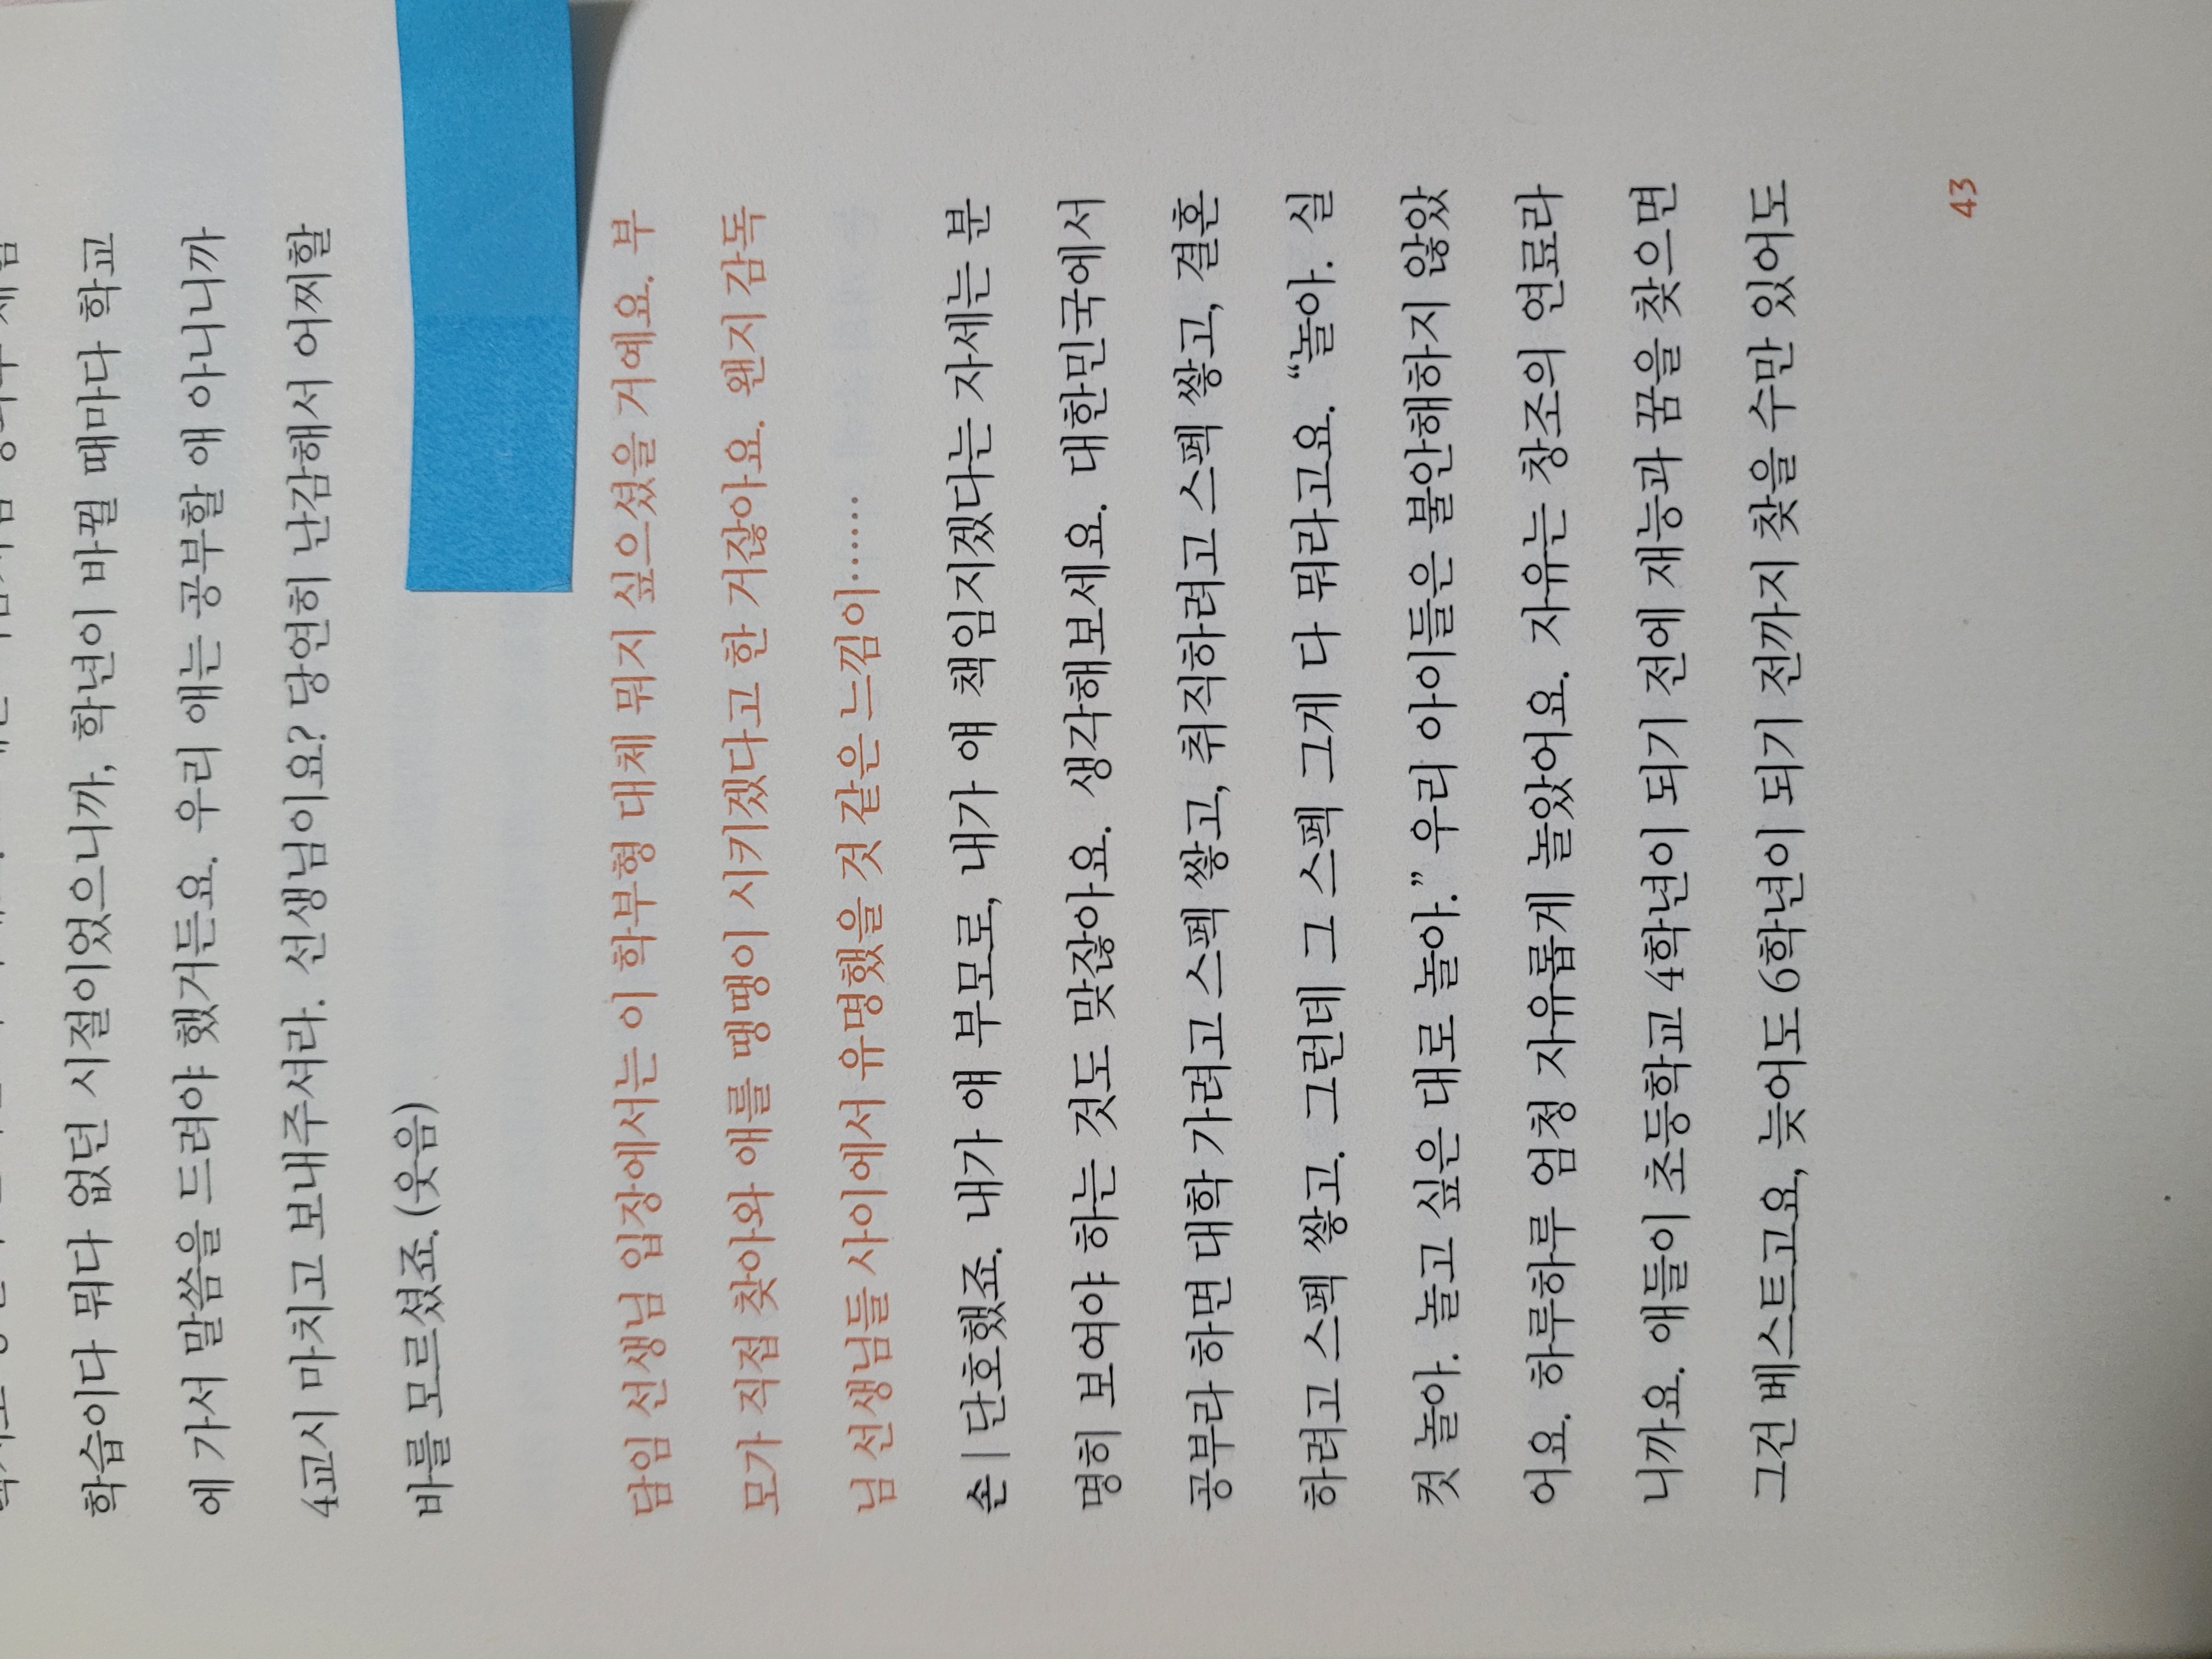 학습이다 뭐다 없던 시절이었으니까, 학년이 바뀔 때마다 학교
에 가서 말씀을 드려야 했거든요. 우리 애는 공부할 애 아니니까
4교시 마치고 보내주셔라. 선생님이요? 당연히 난감해서 어찌할
바를 모르셨죠. (웃음)
담임 선생님 입장에서는 이 학부형 대체 뭐지 싶으셨을 거예요. 부
모가 직접 찾아와 애를 땡땡이 시키겠다고 한 거잖아요. 왠지 감독
님 선생님들 사이에서 유명했을 것 같은 느낌이……
손 | 단호했죠. 내가 얘 부모로, 내가 얘 책임지겠다는 자세는 분
명히 보여야 하는 것도 맞잖아요. 생각해보세요. 대한민국에서
공부라 하면 대학 가려고 스펙 쌓고, 취직하려고 스펙 쌓고, 결혼
하려고 스펙 쌓고. 그런데 그 스펙 그게 다 뭐라고요. “놀아. 실
컷 놀아. 놀고 싶은 대로 놀아.” 우리 아이들은 불안해하지 않았
어요. 하루하루 엄청 자유롭게 놀았어요. 자유는 창조의 연료라
니까요. 애들이 초등학교 4학년이 되기 전에 재능과 꿈을 찾으면
그건 베스트고요, 늦어도 6학년이 되기 전까지 찾을 수만 있어도
43